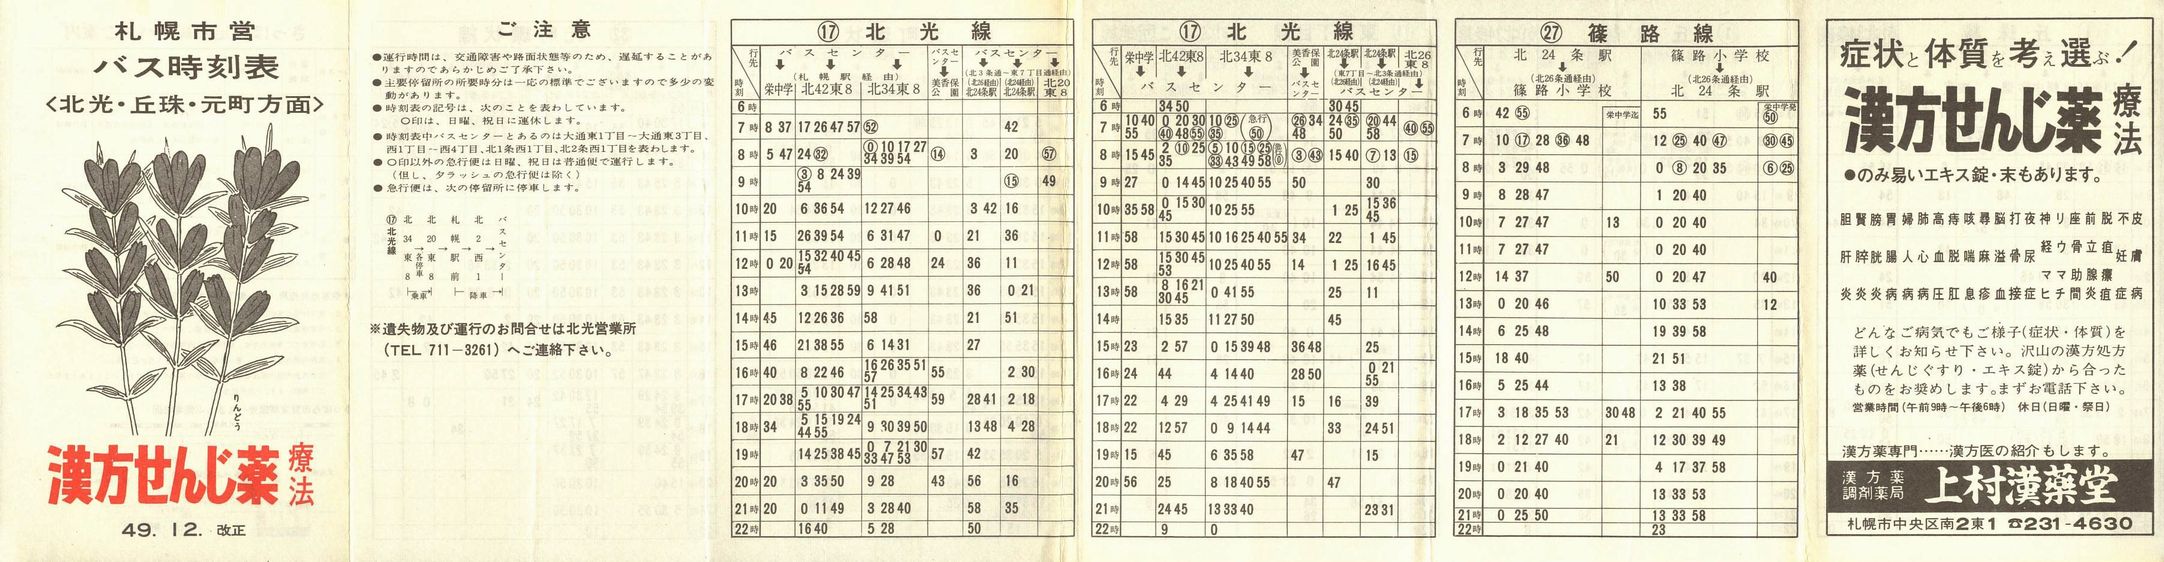 札幌市営
バス時刻表
<北光・丘珠・元町方面>
りんどう
漢方せんじ薬 療法
49. 12. 改正
ご注意
●運行時間は、交通障害や路面状態等のため、遅延することがあ
りますのであらかじめご了承下さい。
●主要停留所の所要時分は一応の標準でございますので多少の変
動があります。
●時刻表の記号は、次のことを表わしています。
○印は、日曜、祝日に運休します。
●時刻表中バスセンターとあるのは大通東1丁目~大通東3丁目、
西1丁目~西4丁目、北1条西1丁目、北2条西1丁目を表わします。
●○印以外の急行便は日曜、祝日は普通便で運行します。
(但し、タラッシュの急行便は除く)
●急行便は、次の停留所に停車します。
⑰北光線
北34東8 → 各停車 → 北20東8 → 札幌駅前 → 北2西1 → バスセンター
乗車 降車
※遺失物及び運行のお問合せは北光営業所
(TEL 711-3261) へご連絡下さい。
⑰ 北光線
行先 時刻
バスセンター ↓ (札幌駅経由) 栄中学 北42東8 北34東8
バスセンター ↓ 美香保公園
バスセンター ↓ (北3条通~東7丁目通経由)
6時
7時 8 37 17 26 47 57 ㊾ 42
8時 5 47 24 ㉜ ⓪ 10 17 27 34 39 54 ⑭ 3 20 57
9時 ③ 8 24 39 54 ⑮ 49
10時 20 6 36 54 12 27 46 3 42 16
11時 15 26 39 54 6 31 47 0 21 36
12時 0 20 15 32 40 45 54 6 28 48 24 36 11
13時 3 15 28 59 9 41 51 36 0 21
14時 45 12 26 36 58 21 51
15時 46 21 38 55 6 14 31 27
16時 40 8 22 46 16 26 35 51 57 55 2 30
17時 20 38 5 10 30 47 55 14 25 34 43 51 59 28 41 2 18
18時 34 5 15 19 24 44 55 9 30 39 50 13 48 4 28
19時 14 25 38 45 0 7 21 30 33 47 53 57 42
20時 20 3 35 50 9 28 43 56 16
21時 20 0 11 49 3 28 40 58 35
22時 16 40 5 28 50
⑰ 北光線
行先 時刻
栄中学 北42東8 北34東8 ↓ バスセンター
美香保公園 ↓ バスセンター
北24条駅 北24条駅 北26東8 (東7丁目~北3条通経由) ↓ バスセンター
6時 34 50 30 45
7時 10 40 55 0 20 30 ㊵ 48 55 10 ㉕ ㉟ 急行 ㊿ ㉖ 34 48 24 ㉟ 50 20 44 58 ㊵ 55
8時 15 45 2 ⑩ 25 35 ⑤ 10 ⑮ ㉕ ㉝ 43 49 58 ③ ㊸ 15 40 ⑦ 13 ⑮
9時 27 0 14 45 10 25 40 55 50 30
10時 35 58 0 15 30 45 10 25 55 1 25 15 36 45
11時 58 15 30 45 10 16 25 40 55 34 22 1 45
12時 58 15 30 45 53 10 25 40 55 14 1 25 16 45
13時 58 8 16 21 30 45 0 41 55 25 11
14時 15 35 11 27 50 45
15時 23 2 57 0 15 39 48 36 48 25
16時 24 44 4 14 40 28 50 0 21 55
17時 22 4 29 4 25 41 49 15 16 39
18時 22 12 57 0 9 14 44 33 24 51
19時 15 45 6 35 58 47 15
20時 56 25 8 18 40 55 47
21時 24 45 13 33 40 23 31
22時 9 0
㉗ 篠路線
行先 時刻
北24条駅 ↓ (北26条通経由) 篠路小学校
篠路小学校 ↓ (北26条通経由) 北24条駅
6時 42 55 栄中学迄 55 栄中学発 ㊿
7時 10 ⑰ 28 ㊱ 48 12 ㉕ 40 ㊼ ㉚ ㊺
8時 3 29 48 0 ⑧ 20 35 ⑥ ㉕
9時 8 28 47 1 20 40
10時 7 27 47 13 0 20 40
11時 7 27 47 0 20 40
12時 14 37 50 0 20 47 40
13時 0 20 46 10 33 53 12
14時 6 25 48 19 39 58
15時 18 40 21 51
16時 5 25 44 13 38
17時 3 18 35 53 30 48 2 21 40 55
18時 2 12 27 40 21 12 30 39 49
19時 0 21 40 4 17 37 58
20時 0 20 40 13 33 53
21時 0 25 50 13 33 58
22時 23
症状と体質を考え選ぶ!
漢方せんじ薬 療法
●のみ易いエキス錠・末もあります。
胆腎膀胃婦肺高痔咳尋脳打夜神リ座前脱不皮
肝膵胱腸人心血脱喘麻溢骨尿経ウ骨立疽妊膚
ママ助腺癢
炎炎炎病病病圧肛息疹血接症ヒチ間炎疽症病
どんなご病気でもご様子(症状・体質)を
詳しくお知らせ下さい。沢山の漢方処方
薬(せんじぐすり・エキス錠)から合った
ものをお奨めします。まずお電話下さい。
営業時間(午前9時~午後6時) 休日(日曜・祭日)
漢方薬専門……漢方医の紹介もします。
漢方薬 調剤薬局 上村漢薬堂
札幌市中央区南2東1 ☎231-4630